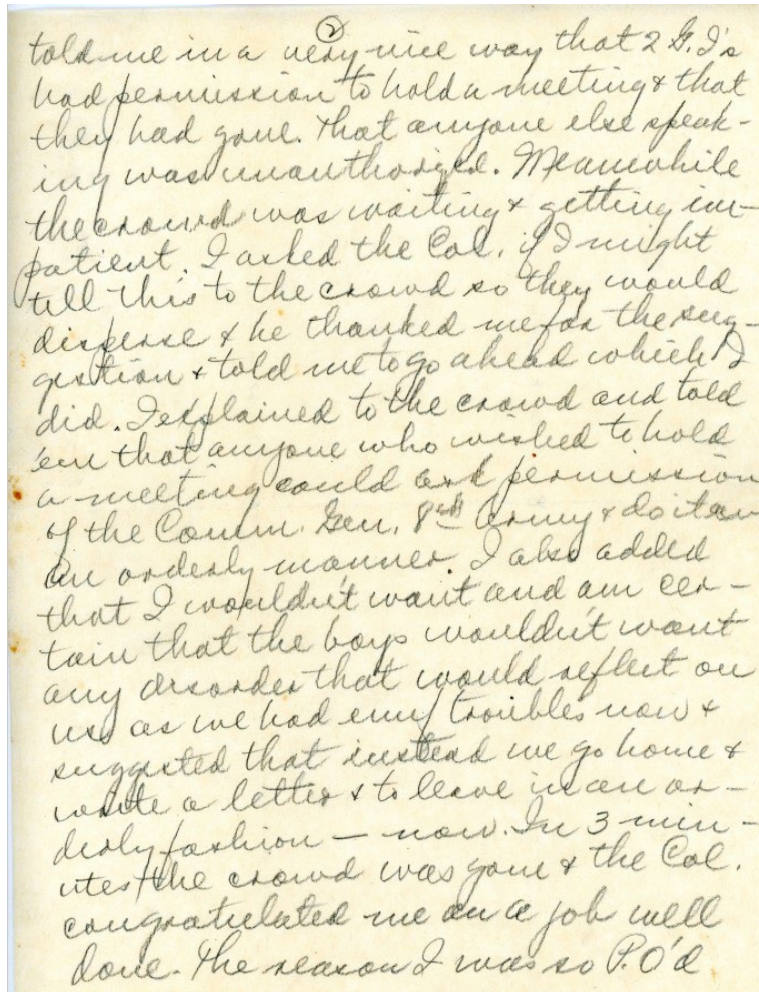 2
told me in a very nice way that 2 G.I's
had permission to hold a meeting & that
they had gone. That anyone else speak-
ing was unauthorized. Meanwhile
the crowd was waiting & getting im-
patient. I asked the Col. if I might
tell this to the crowd so they would
disperse & he thanked me for the sug-
gestion & told me to go ahead which I
did. I explained to the crowd and told
'em that anyone who wished to hold
a meeting could ask permission
of the Comm. Gen. 8th Army & do it in
an orderly manner. I also added
that I wouldn't want and am cer-
tain that the boys wouldn't want
any disorder that would reflect on
us as we had enuf troubles now &
suggested that instead we go home &
write a letter & to leave in an or-
derly fashion — now. In 3 min-
utes the crowd was gone & the Col.
congratulated me on a job well
done. The reason I was so P.O'd